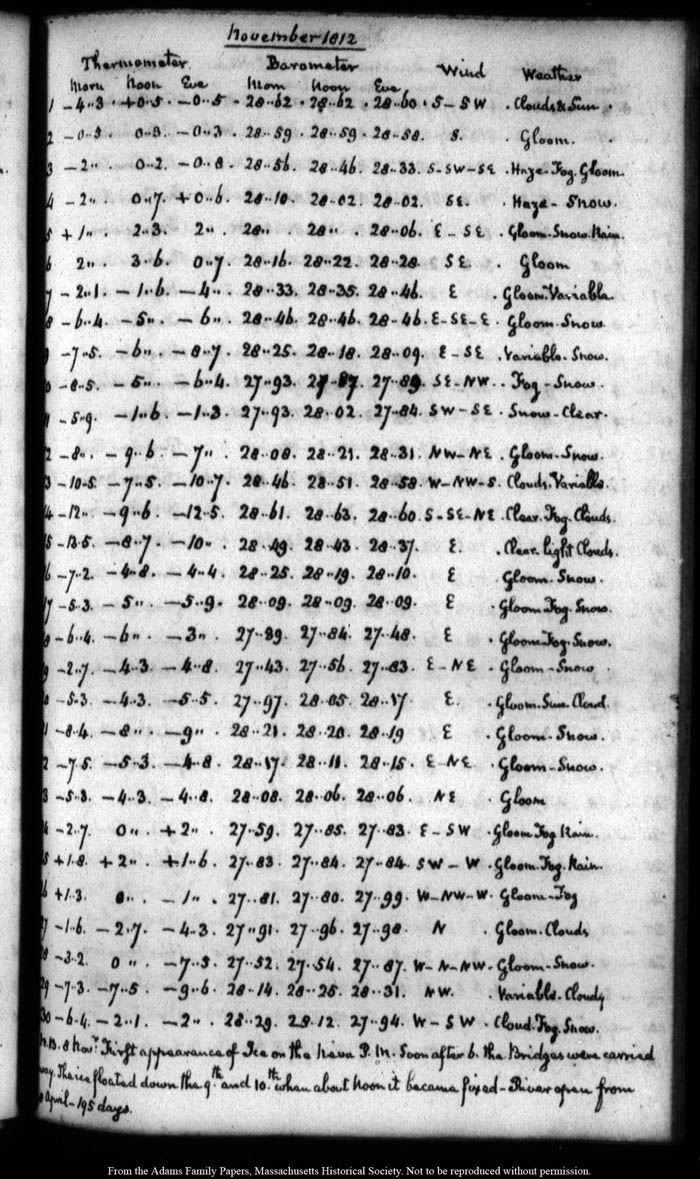 November 1812
Thermometer. Barometer Wind Weather
Morn Noon Eve Morn Noon Eve
1 -4..3 +0..5 -0..5 28..62 28..62 28..60 S-SW Clouds & Sun
2 -0..3 0..9 -0..3 28..59 28..59 28..58 S. Gloom.
3 -2" 0..2 -0..8 28..56 28..46 28..33 S-SW-SE Haze-Fog. Gloom
4 -2" 0..7 +0..6 28..10 28..02 28..02 SE. Haze-Snow.
5 +1" 2..3 2" 28" 28" 28..06 E-SE Gloom. Snow. Rain.
6 2" 3..6 0..7 28..16 28..22 28..28 SE. Gloom
7 -2..1 -1..6 -4" 28..33 28..35 28..46 E Gloom. Variable
8 -6..4 -5" -6" 28..46 28..46 28..46 E-SE-E Gloom-Snow
9 -7..5 -6" -8..7 28..25 28..18 28..09 E-SE Variable-Snow.
0 -8..5 -5" -6..4 27..93 27..87 27..89 SE-NW Fog-Snow.
1 -5..9 -1..6 -1..3 27..93 28..02 27..84 SW-SE Snow-Clear.
2 -8" -9..6 -7" 28..08 28..21 28..31 NW-NE Gloom-Snow.
3 -10..5 -7..5 -10..7 28..46 28..51 28..58 W-NW-S. Clouds. Variable
4 -12" -9..6 -12..5 28..61 28..63 28..60 S-SE-NE Clear. Fog. Clouds.
5 -13..5 -8..7 -10" 28..49 28..43 28..37 E. Clear. light Clouds.
6 -7..2 -4..8 -4..4 28..25 28..19 28..10 E Gloom-Snow.
17 -5..3 -5" -5..9 28..09 28..09 28..09 E Gloom. Fog. Snow.
8 -6..4 -6" -3" 27..89 27..84 27..48 E Gloom. Fog. Snow.
9 -2..7 -4..3 -4..8 27..43 27..56 27..83 E-NE Gloom-Snow
0 -5..3 -4..3 -5..5 27..97 28..05 28..17 E. Gloom. Sun. Cloud.
1 -8..4 -8" -9" 28..21 28..20 28..19 E Gloom-Snow.
2 -7..5 -5..3 -4..8 28..17 28..11 28..15 E-NE Gloom-Snow.
3 -5..3 -4..3 -4..8 28..08 28..06 28..06 NE Gloom
4 -2..7 0" +2" 27..59 27..85 27..83 E-SW Gloom Fog Rain.
5 +1..8 +2" +1..6 27..83 27..84 27..84 SW-W Gloom. Fog. Rain.
6 +1..3 0" -1" 27..81 27..80 27..99 W-NW-W Gloom-Fog
27 -1..6 -2..7 -4..3 27..91 27..96 27..98 N Gloom-Clouds
28 -3..2 0" -7..3 27..52 27..54 27..87 W-N-NW Gloom-Snow.
29 -7..3 -7..5 -9..6 28..14 28..25 28..31 NW. Variable-Cloudy
30 -6..4 -2..1 -2" 28..29 28..12 27..94 W-SW Cloud. Fog. Snow.
N.B. 8 Novr. First appearance of Ice on the Neva P.M. Soon after 6. the Bridges were carried
way. The ice floated down the 9th. and 10th. when about Noon it became fixed-River open from
April-195 days.
From the Adams Family Papers, Massachusetts Historical Society. Not to be reproduced without permission.